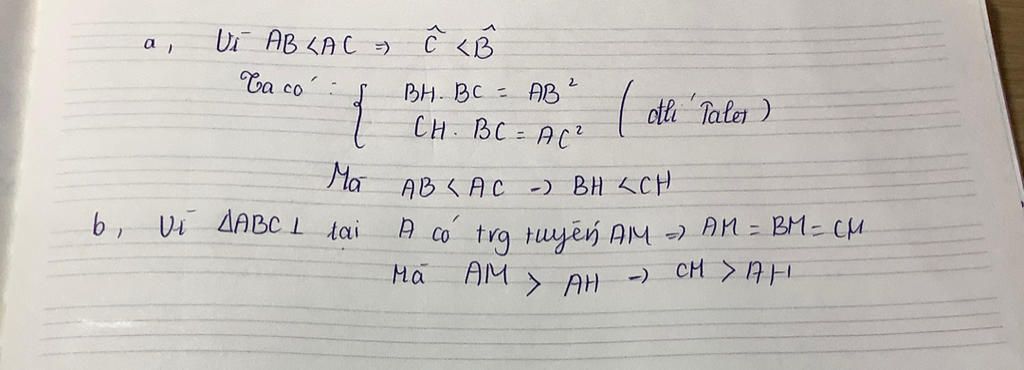 a, Vì AB < AC => Ĉ < B̂
Ta có: { BH. BC = AB²
CH. BC = AC² ( đlí Talet )
Mà AB < AC -> BH < CH
b, Vì ΔABC ⊥ tại A có trg tuyến AM => AM = BM = CM
Mà AM > AH -> CM > AH